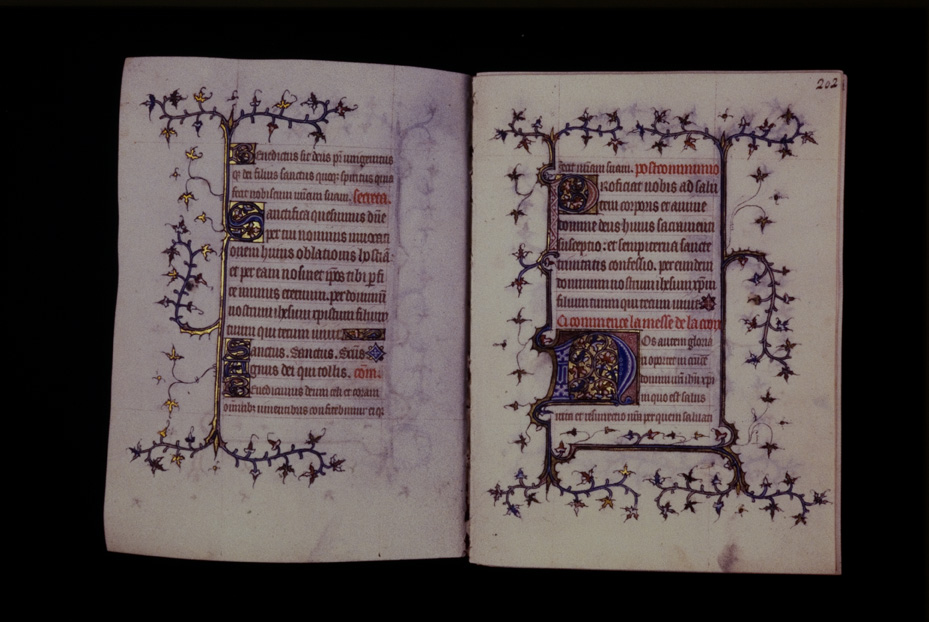 Benedictus sit deus pr̄ unigenitus
q̄ dei filius sanctus quoq̄ spiritus quia
fecit nobiscum m̄iam suam. secreta.
Sanctifica quesumus dn̄e
per tui nominis
hostiam huius oblationis
et per eam nosmet ip̄os tibi p̄fi
ce munus eternum. per dominum
nostrum ihesum xpistum filium
tuum qui tecum
Sanctus. Sanctus. Sc̄us
Agnus dei qui tollis. com̄.
Benedicimus deum celi et coram
omnibus viventibus confitebimur ei q̄
202
fecit m̄iam suam. postcommunio
Proficiat nobis ad salu
tem corporis et anime
domine deus huius sacramenti
susceptio: et sempiterna sancte
trinitatis confessio. per eundem
dominum nostrum ihesum xp̄m
filium tuum qui tecum
Ci commence la messe de la croix
Nos autem gloria
ri oportet in cruce
domini n̄ri ih̄u xp̄i
in quo est salus
vita et resurrectio n̄ra per quem saluati